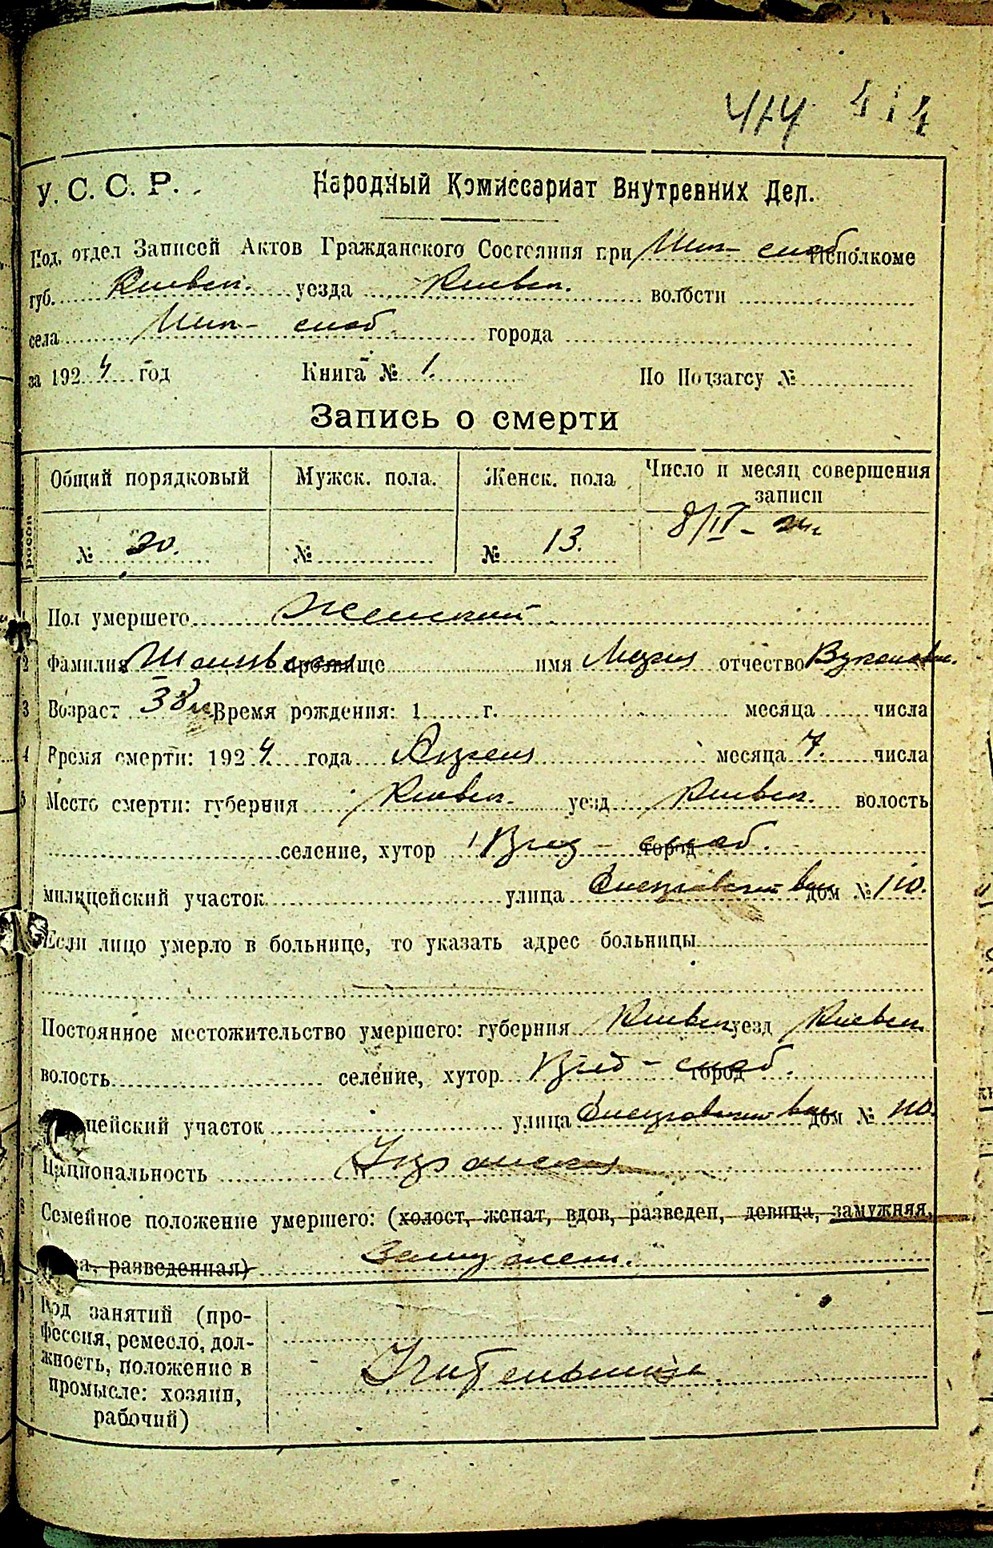 414 414
У. С. С. Р. Народный Комиссариат Внутревних Дел.
Под, отдел Записей Актов Гражданского Состояния при Исполкоме
губ. Киевск. уезда Киевск. волости
села города
за 1924 год Книга № 1. По Подзагсу №
Запись о смерти
Общий порядковый Мужск. пола. Женск. пола Число и месяц совершения
записи
№ 20. № № 13. 8/IV-24г.
Пол умершего Женский
2 Фамилия прозвище имя Мария отчество
3 Возраст 38 л. Время рождения: 1 г. месяца числа
4 Время смерти: 1924. года Апреля месяца 7. числа
5 Место смерти: губерния Киевск. уезд Киевск. волость
селение, хутор город
милицейский участок улица дом № 110.
Если лицо умерло в больнице, то указать адрес больницы
Постоянное местожительство умершего: губерния Киевск. уезд Киевск.
волость селение, хутор город
цейский участок улица дом № 110.
Национальность
Семейное положение умершего: (холост, женат, вдов, разведен, девица, замужняя,
ва, разведенная) Замужем.
Род занятий (про-
фессия, ремесло, дол-
жность, положение в
промысле: хозяин,
рабочий)
Учительница